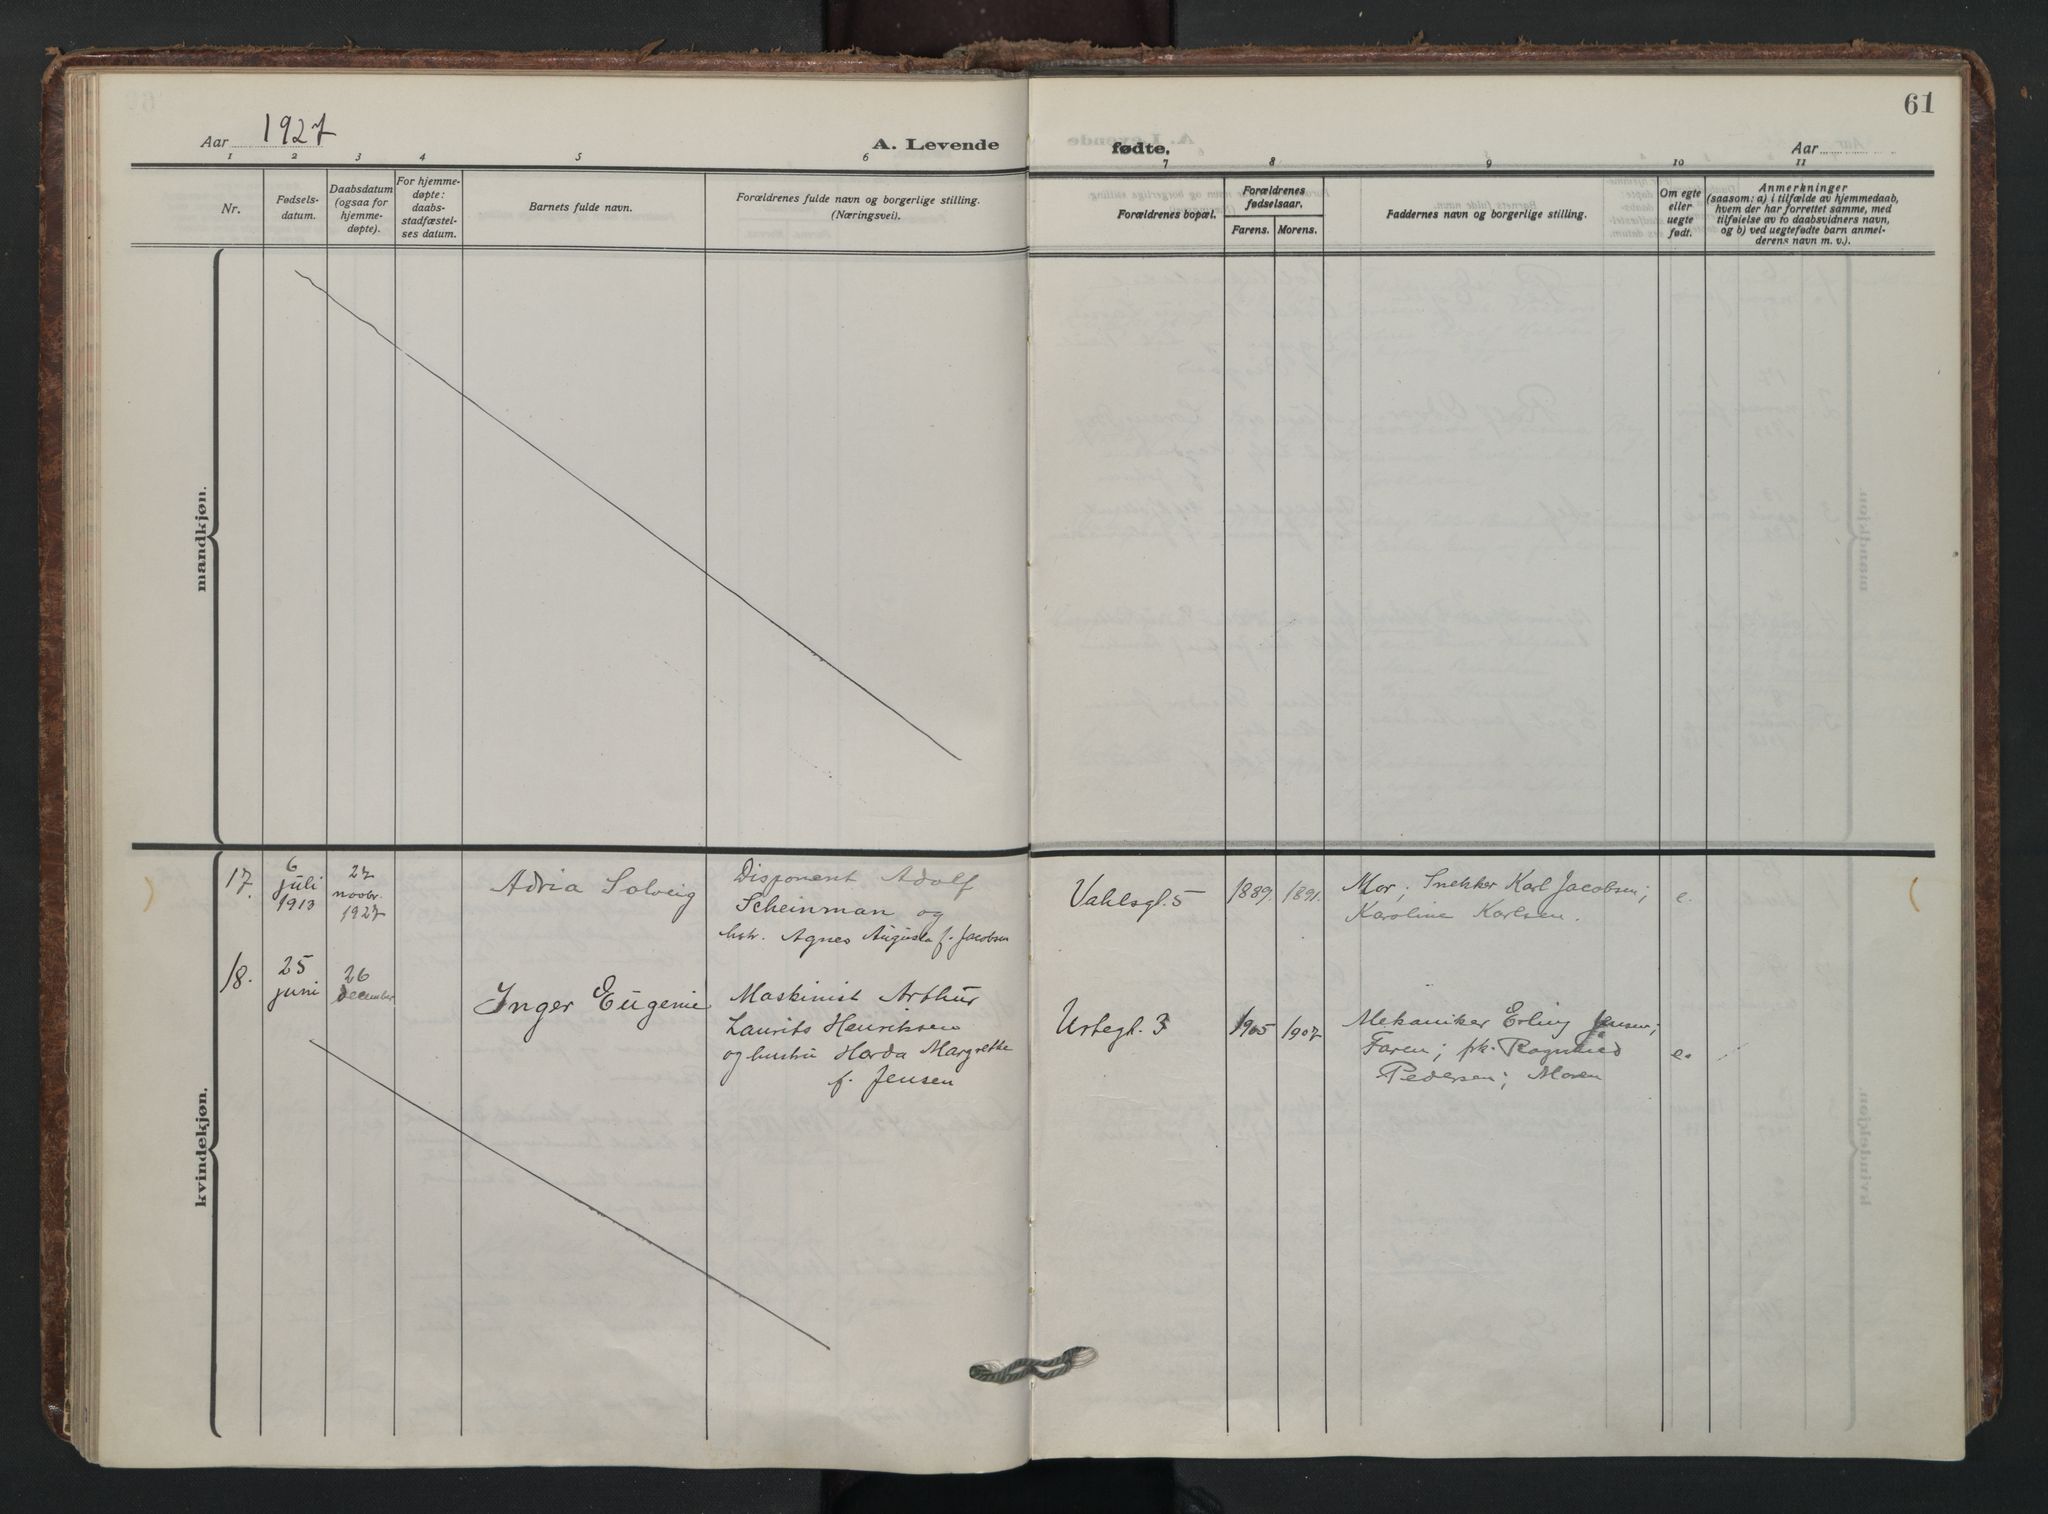 61
Aar 1927
A. Levende fødte.
Aar
1 2 3 4 5 6 7 8 9 10 11
Nr.
Fødsels-
datum.
Daabsdatum
(ogsaa for
hjemme-
døpte).
For hjemme-
døpte:
daabs-
stadfæstel-
ses datum.
Barnets fulde navn.
Forældrenes fulde navn og borgerlige stilling.
(Næringsvei).
Forældrenes bopæl.
Forældrenes
fødselsaar.
Farens. Morens.
Faddernes navn og borgerlige stilling.
Om egte
eller
uegte
født.
Anmerkninger
(saasom: a) i tilfælde av hjemmedaab,
hvem der har forrettet samme, med
tilføielse av to daabsvidners navn,
og b) ved uegtefødte barn anmel-
derens navn m. v.).
mandkjøn.
kvindekjøn.
17.
6
juli
1913
27
novbr.
1927
Adria Solveig
Disponent Adolf
Scheinman og
hstr. Agnes Augusta f. Jacobsen
Vahlsgt. 5
1889. 1891.
Mor; Snekker Karl Jacobsen;
Karoline Karlsen.
e.
18.
25
juni
26
december
Inger Eugenie
Maskinist Arthur
Laurits Henriksen
og hustru Horda Margrethe
f. Jensen
Urtegt. 3
1905 1907
Mekaniker Erling Jensen;
Faren; frk. Ragnhild
Pedersen; Moren
e.